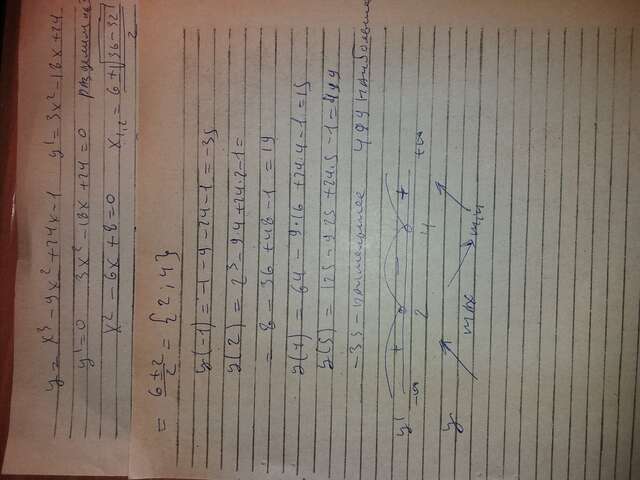 y = x³ - 9x² + 24x - 1 y' = 3x² - 18x + 24
y' = 0 3x² - 18x + 24 = 0
x² - 6x + 8 = 0 x₁,₂ = 6 ± √36-32 / 2
= 6±2 / 2 = {2; 4}
y(-1) = -1 - 9 - 24 - 1 = -35
y(2) = 2³ - 9·4 + 24·2 - 1 =
= 8 - 36 + 48 - 1 = 19
y(4) = 64 - 9·16 + 24·4 - 1 = 15
y(5) = 125 - 9·25 + 24·5 - 1 =
-35 - наименьшее наибольшее
y' + - +
-∞ 2 4 +∞
y max min